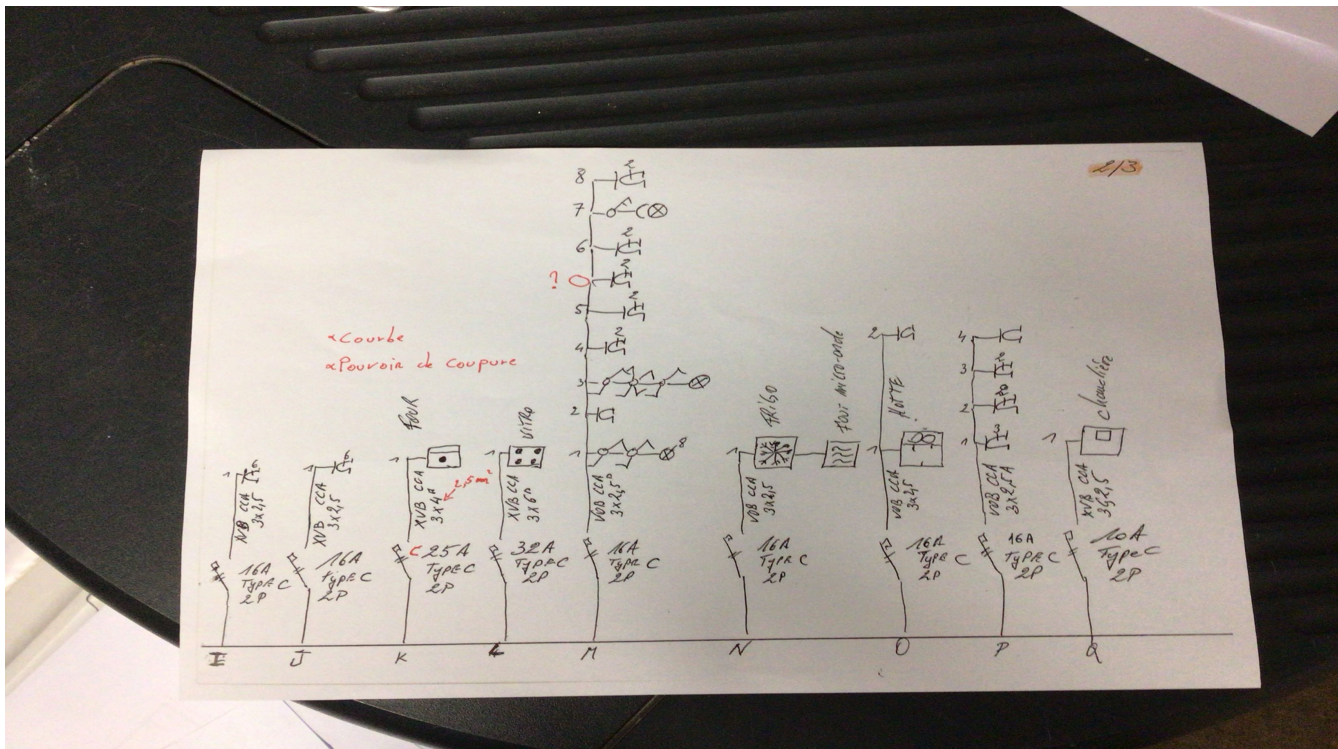 2/3
8
2
7
6
2
?
2
5
2
4
2
3
2
1
8
* Courbe
* Pouvoir de coupure
1
XVB CCA
3x2,5
16A
Type C
2P
1
XVB CCA
3x2,5
16A
Type C
2P
FOUR
1
XVB CCA
3x4²
2,5m²
C 25A
Type C
2P
VITRO
1
XVB CCA
3x6²
32A
Type C
2P
VOB CCA
3x2,5²
16A
Type C
2P
FRIGO
1
VOB CCA
3x2,5
16A
Type C
2P
Four micro-onde
2
HOTTE
1
VOB CCA
3x2,5
16A
Type C
2P
4
3
2
1
VOB CCA
3x2,5A
16A
Type C
2P
Chaudière
1
XVB CCA
3G2,5
10A
Type C
2P
I J K L M N O P Q